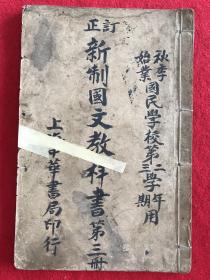 訂正
秋季始業國民學校第二三學年期用
新制國文教科書第三冊
上 中華書局印行